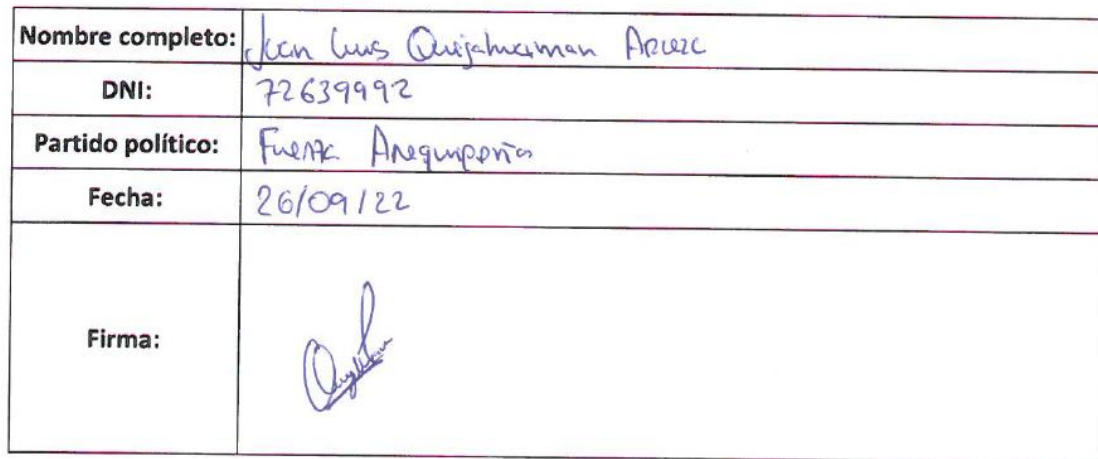 Nombre completo: Juan Luis Quijahuaman
DNI: 72639992
Partido político: Fuerza Arequipeña
Fecha: 26/09/22
Firma: